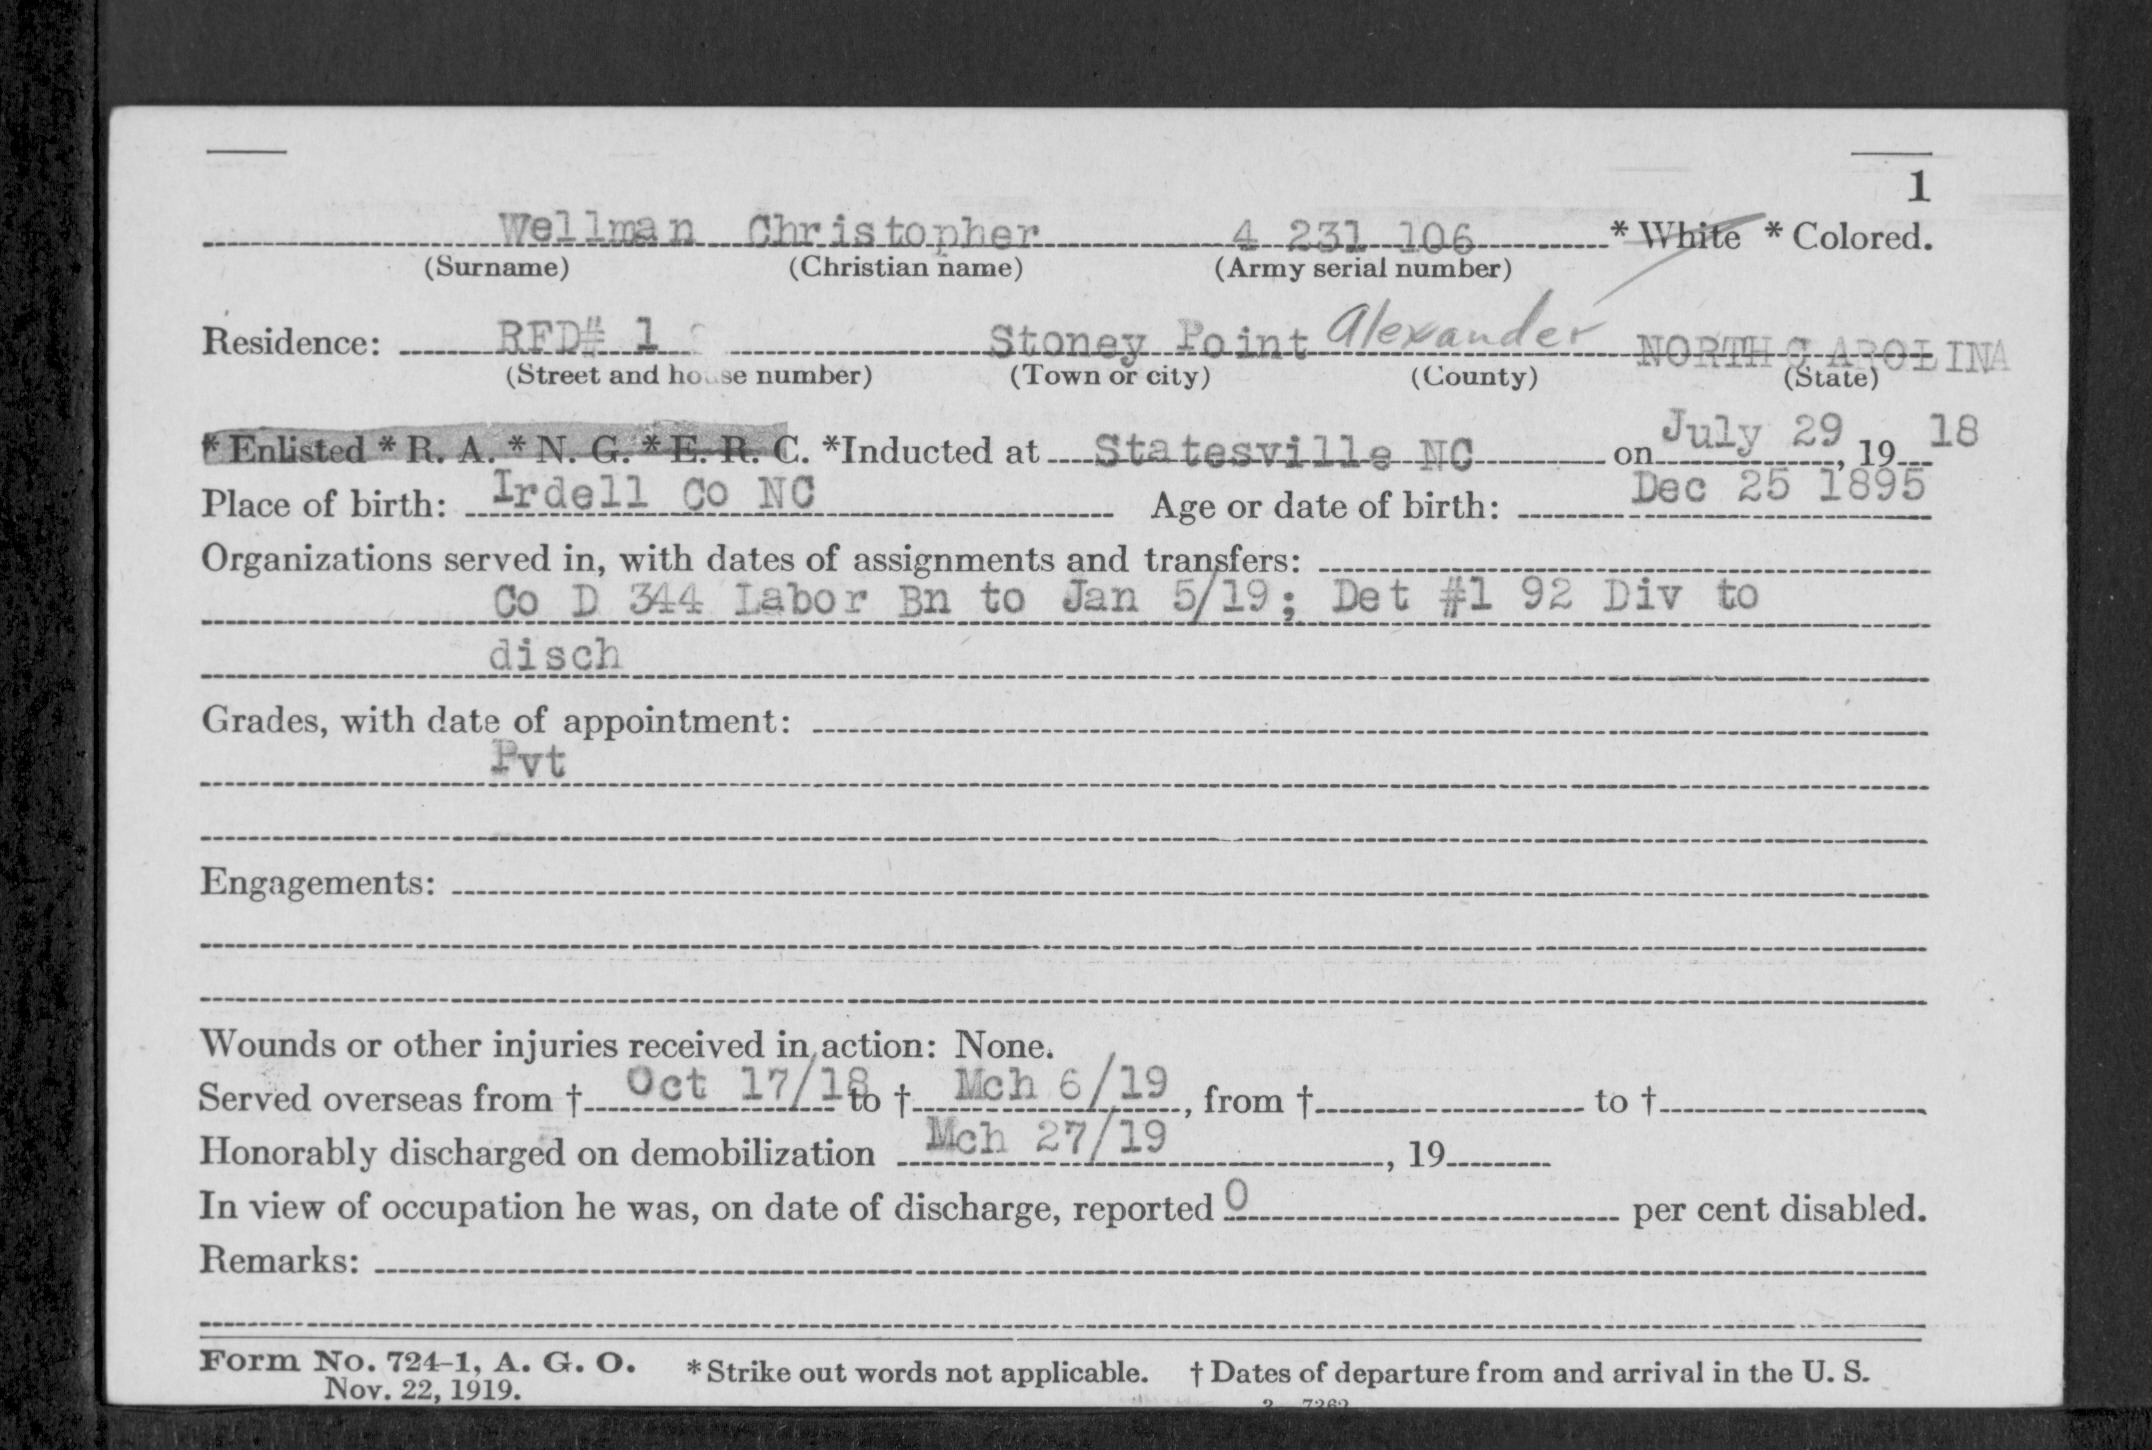 1
Wellman Christopher 4 231 106 * White * Colored.
(Surname) (Christian name) (Army serial number)
Residence: RFD# 1 Stoney Point Alexander NORTH CAROLINA
(Street and house number) (Town or city) (County) (State)
* Enlisted * R. A. * N. G. * E. R. C. *Inducted at Statesville NC on July 29, 19 18
Place of birth: Irdell Co NC Age or date of birth: Dec 25 1895
Organizations served in, with dates of assignments and transfers:
Co D 344 Labor Bn to Jan 5/19; Det #1 92 Div to
disch
Grades, with date of appointment:
Pvt
Engagements:
Wounds or other injuries received in action: None.
Served overseas from † Oct 17/18 to † Mch 6/19, from † to †
Honorably discharged on demobilization Mch 27/19, 19
In view of occupation he was, on date of discharge, reported 0 per cent disabled.
Remarks:
Form No. 724-1, A. G. O. * Strike out words not applicable. † Dates of departure from and arrival in the U. S.
Nov. 22, 1919.